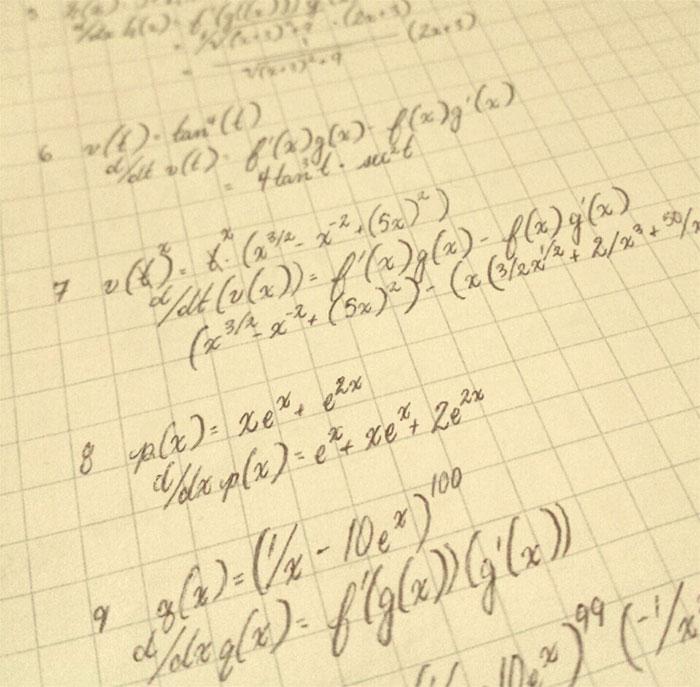 (2x+3)
√(x+3)²+9
6 v(t) = tan⁴(t)
d/dt v(t) = f'(x)g(x) - f(x)g'(x)
= 4tan³t · sec²t
7 v(x) = x · (x^3/2 - x^-2 + (5x)²)
d/dt(v(x)) = f'(x)g(x) - f(x)g'(x)
(x^3/2 - x^-2 + (5x)²) - (x(3/2x^1/2 + 2/x³ + 50/x
8 p(x) = xe^x + e^2x
d/dx p(x) = e^x + xe^x + 2e^2x
9 q(x) = (1/x - 10e^x)^100
d/dx q(x) = f'(g(x))(g'(x))
10e^x)^99 (-1/x